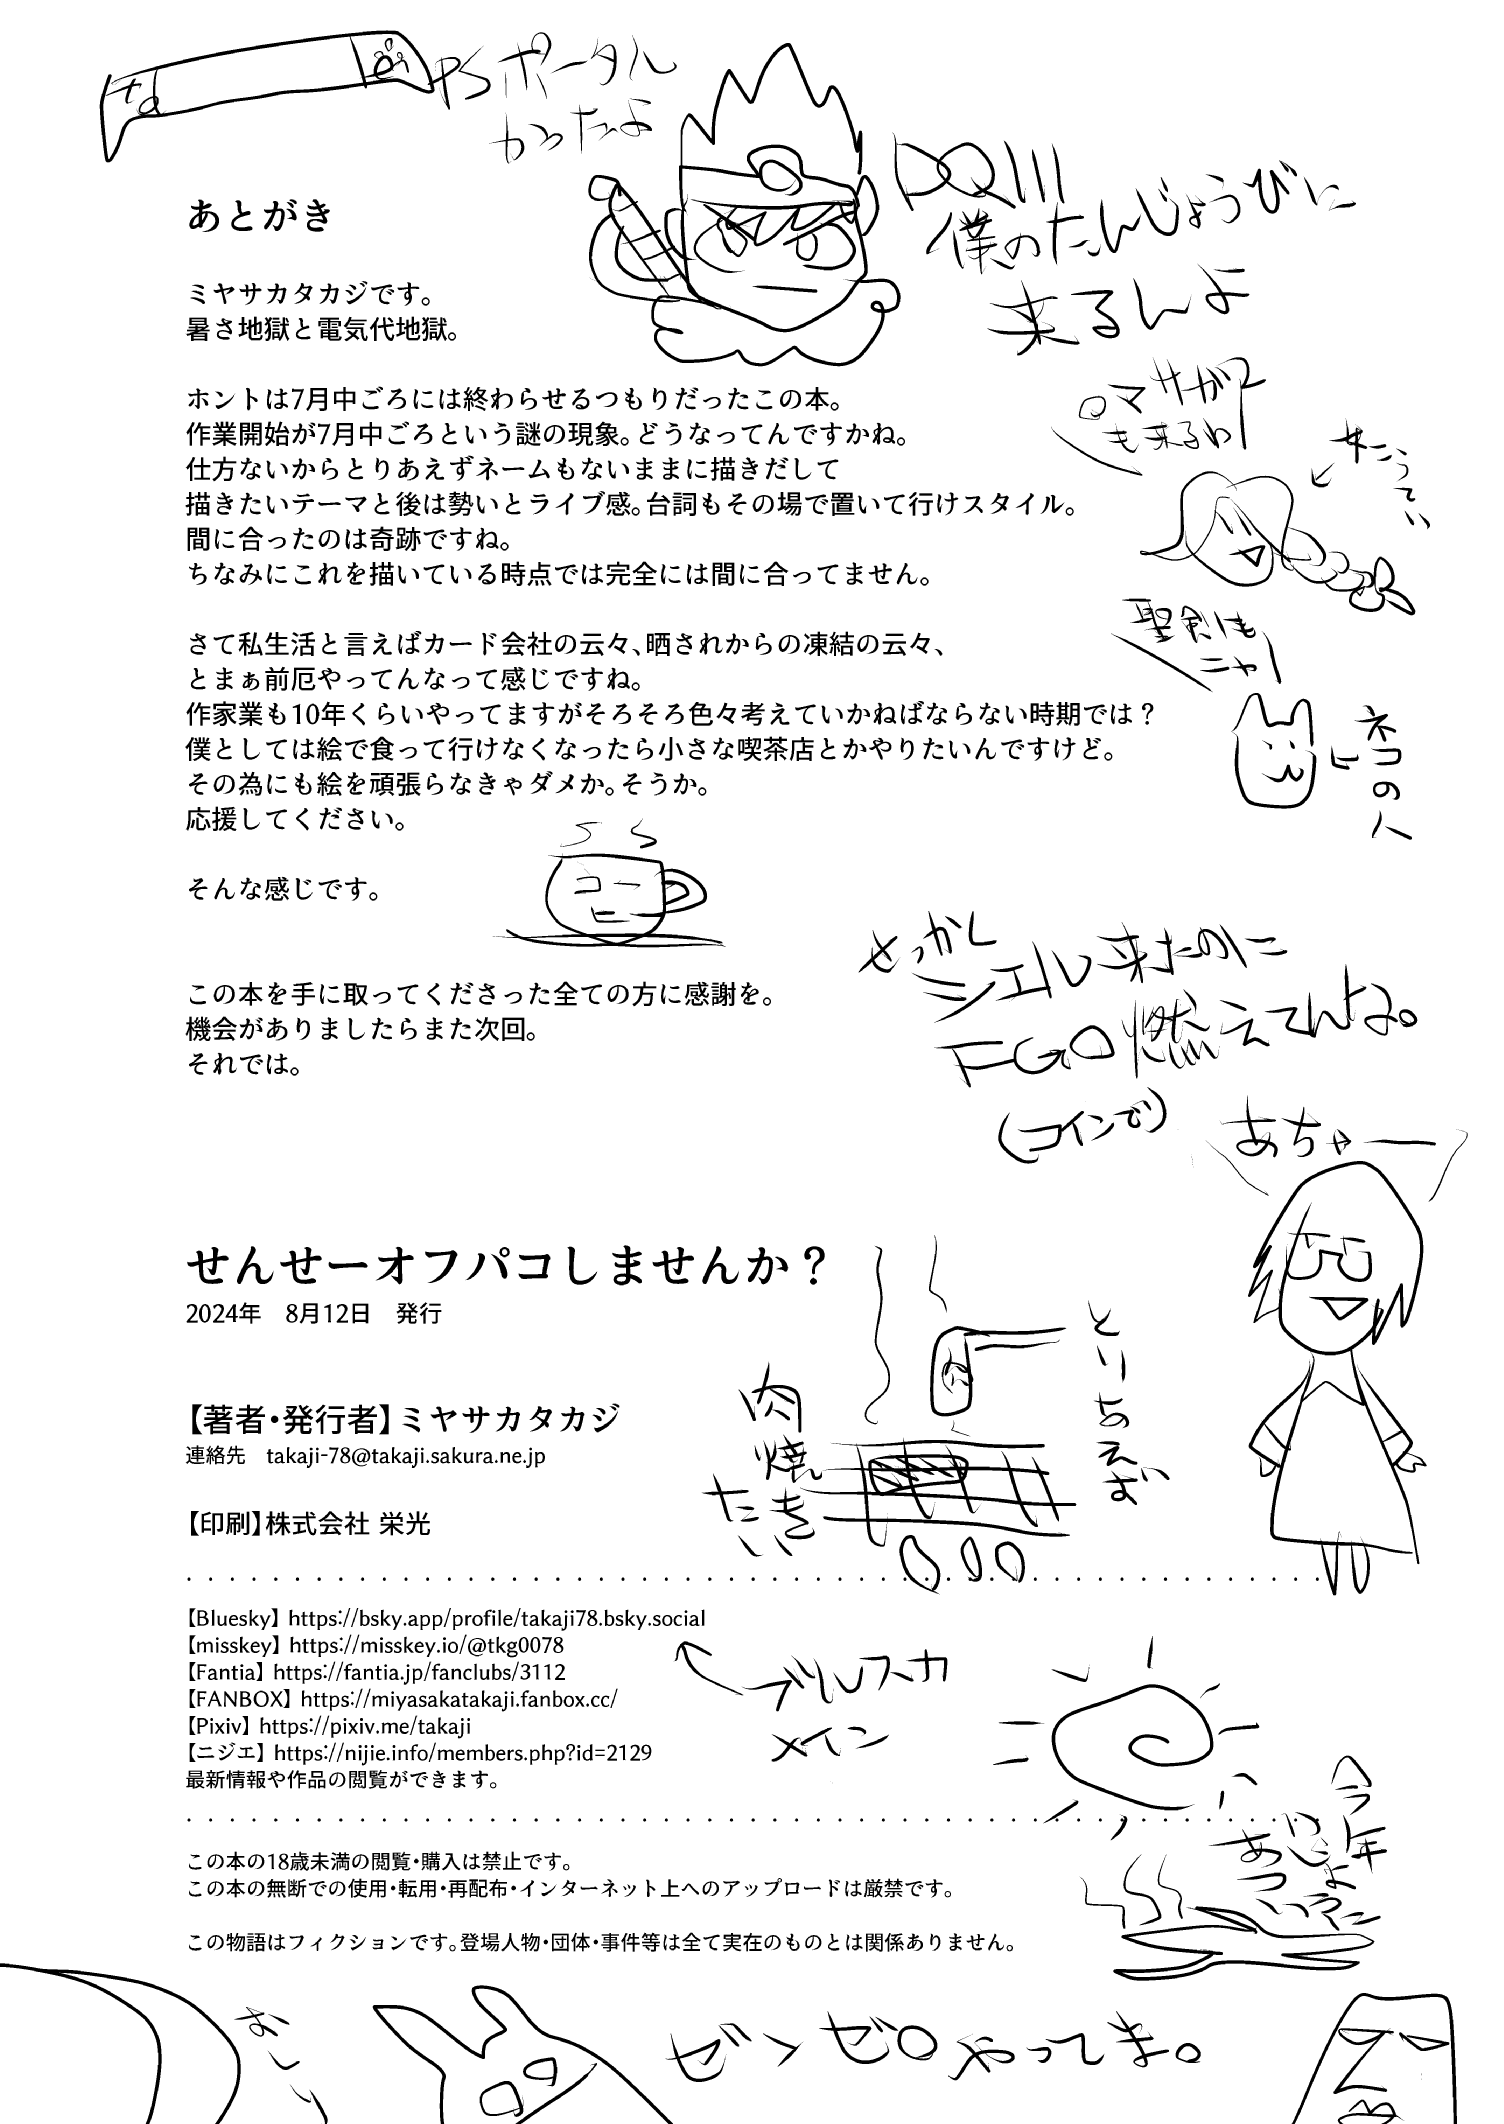 PSポータル
かったよ
DQIII
僕のたんじょうびに
来るんよ
あとがき
ミヤサカタカジです。
暑さ地獄と電気代地獄。
ロマサガ2
も来るわ
ホントは7月中ごろには終わらせるつもりだったこの本。
作業開始が7月中ごろという謎の現象。どうなってんですかね。
仕方ないからとりあえずネームもないままに描きだして
描きたいテーマと後は勢いとライブ感。台詞もその場で置いて行けスタイル。
間に合ったのは奇跡ですね。
ちなみにこれを描いている時点では完全には間に合ってません。
聖剣も
ニャ
さて私生活と言えばカード会社の云々、晒されからの凍結の云々、
とまぁ前厄やってんなって感じですね。
作家業も10年くらいやってますがそろそろ色々考えていかねばならない時期では？
僕としては絵で食って行けなくなったら小さな喫茶店とかやりたいんですけど。
その為にも絵を頑張らなきゃダメか。そうか。
応援してください。
ネコの人
コー
ヒー
そんな感じです。
せっかく
シエル来たのに
FGO燃えてんよ。
(コインで)
この本を手に取ってくださった全ての方に感謝を。
機会がありましたらまた次回。
それでは。
あちゃー
せんせーオフパコしませんか？
2024年　8月12日　発行
とりあえず
肉
焼き
たい
【著者・発行者】ミヤサカタカジ
連絡先　takaji-78@takaji.sakura.ne.jp
【印刷】株式会社 栄光
【Bluesky】https://bsky.app/profile/takaji78.bsky.social
【misskey】https://misskey.io/@tkg0078
【Fantia】https://fantia.jp/fanclubs/3112
【FANBOX】https://miyasakatakaji.fanbox.cc/
【Pixiv】https://pixiv.me/takaji
【ニジエ】https://nijie.info/members.php?id=2129
最新情報や作品の閲覧ができます。
ブルスカ
メイン
今年
あつい
この本の18歳未満の閲覧・購入は禁止です。
この本の無断での使用・転用・再配布・インターネット上へのアップロードは厳禁です。
この物語はフィクションです。登場人物・団体・事件等は全て実在のものとは関係ありません。
おしり
ゼンゼロやってま。